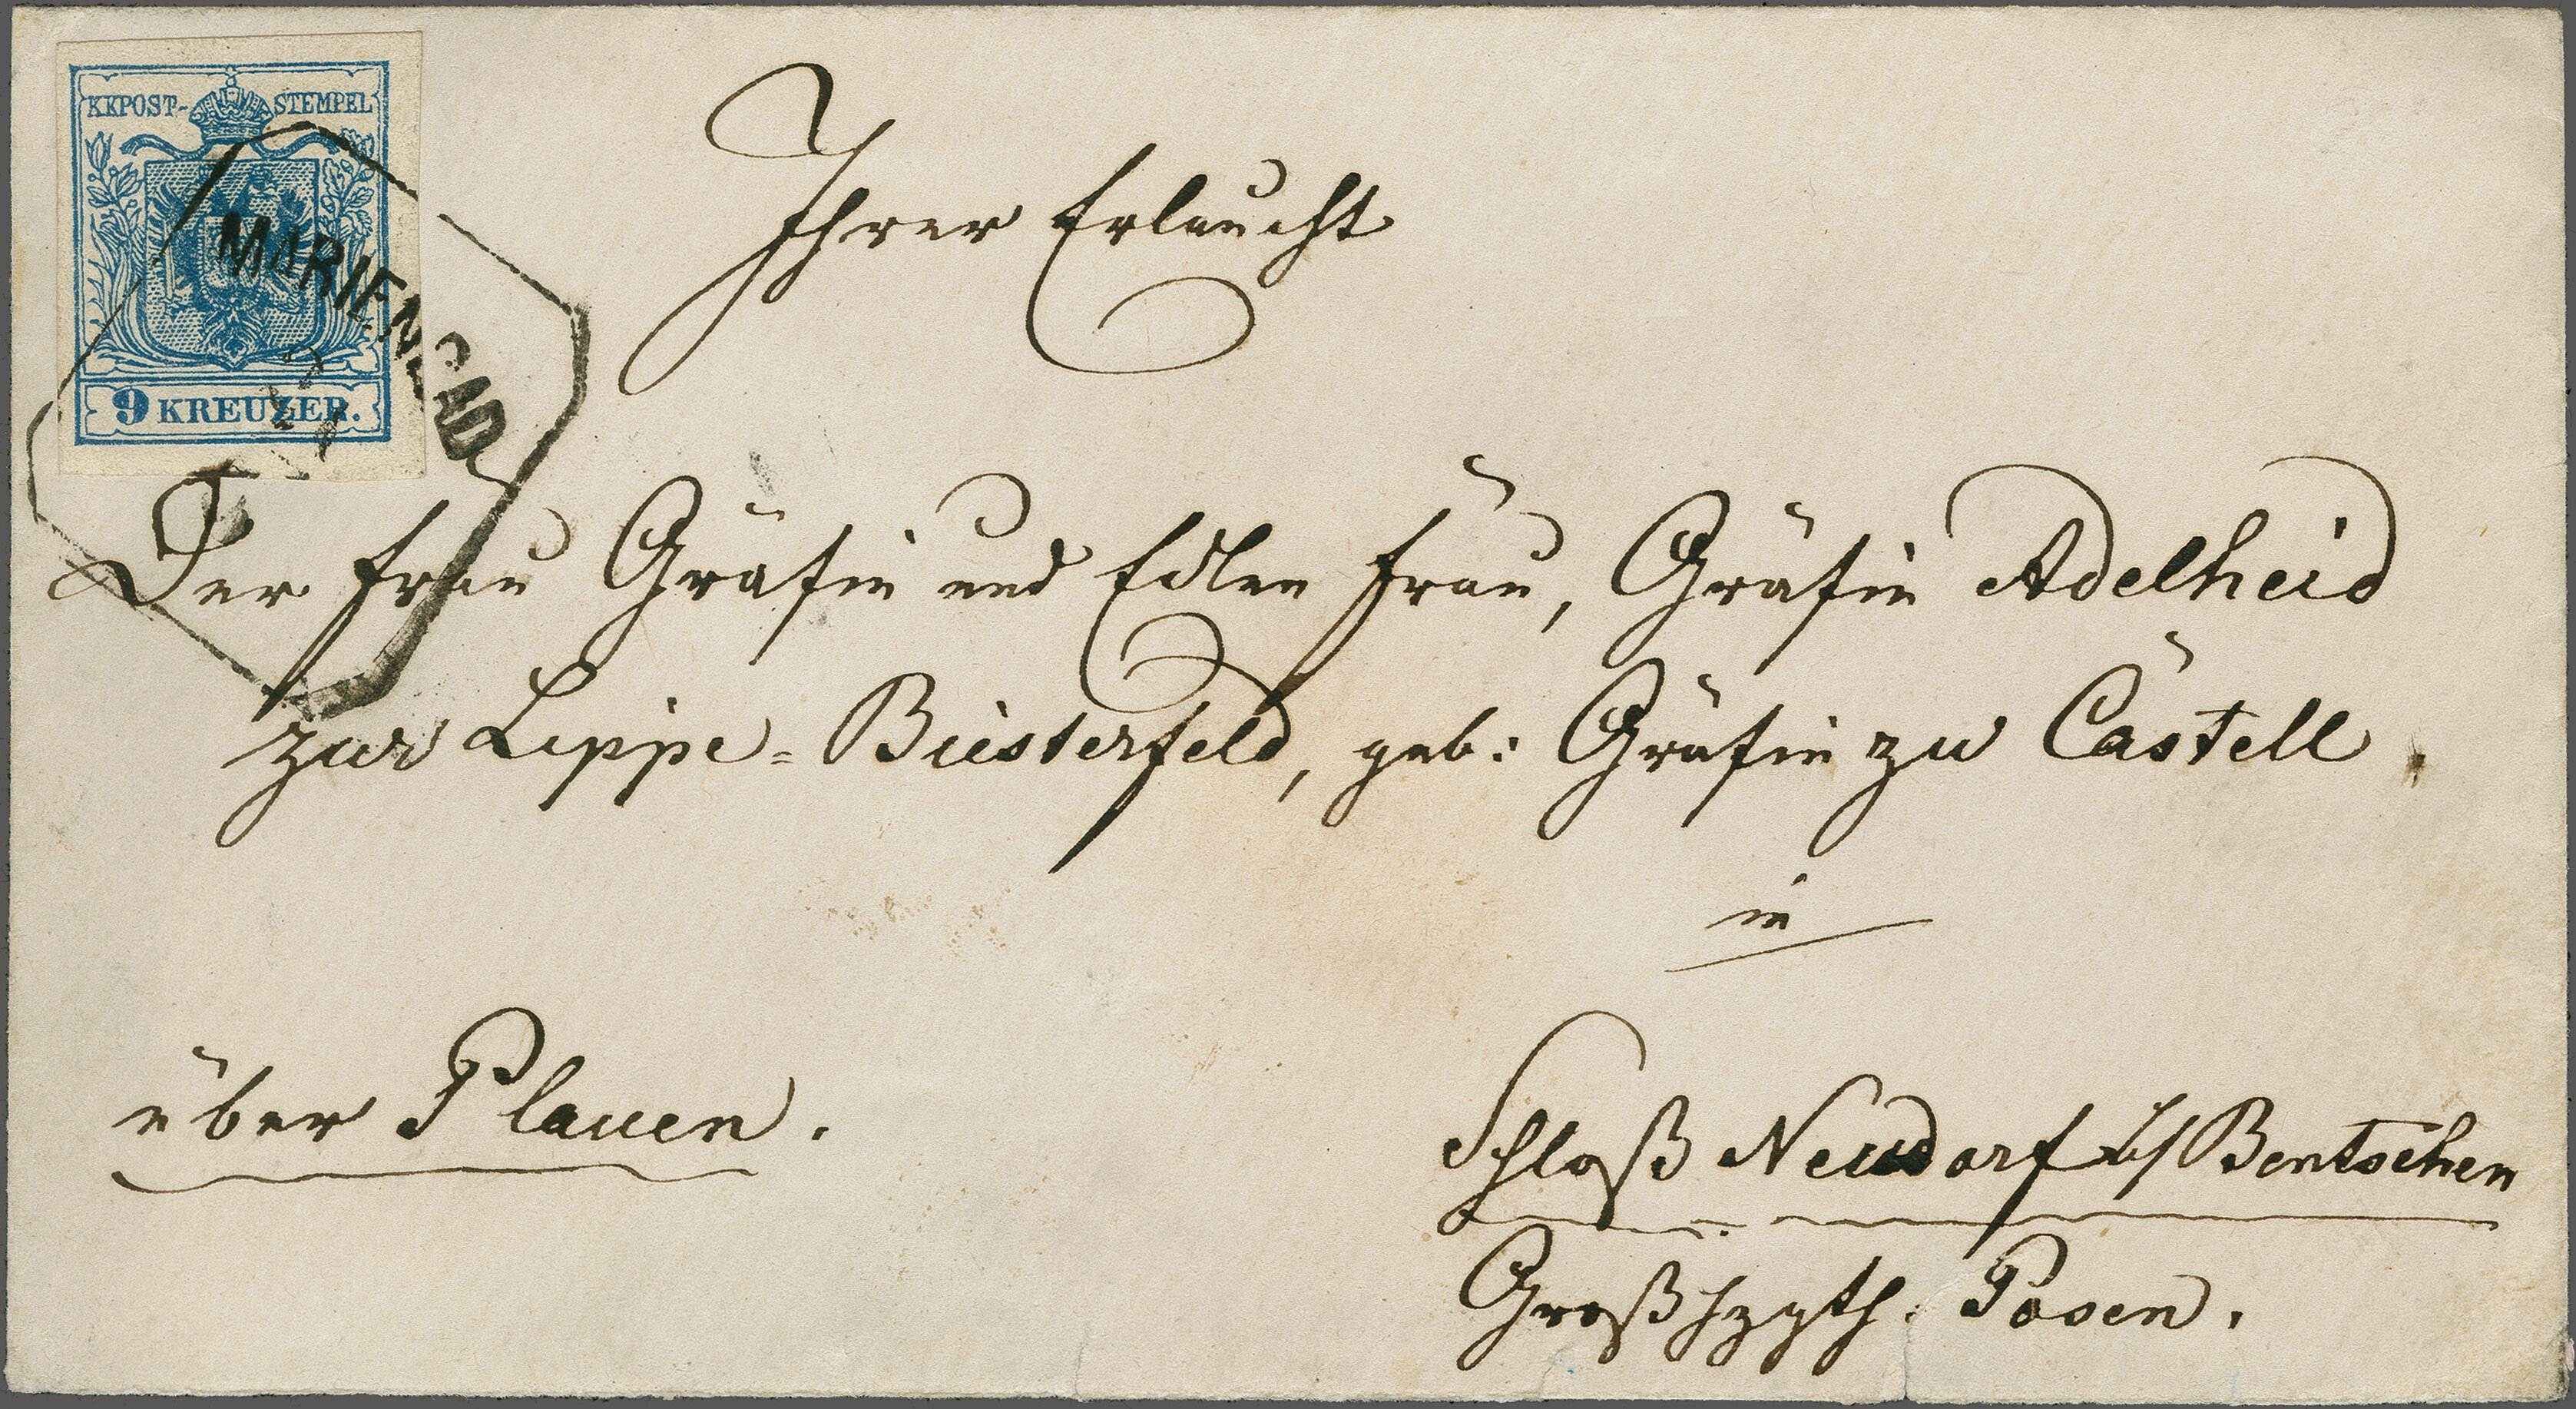 KKPOST-STEMPEL
9 KREUZER.
MARIENBAD
Ihrer Erlaucht
Der Frau Gräfin und Edlen Frau, Gräfin Adelheid
zur Lippe-Biesterfeld, geb: Gräfin zu Castell
in
über Plauen.
Schloß Neudorf b/Bentschen
Großhzgth. Posen.